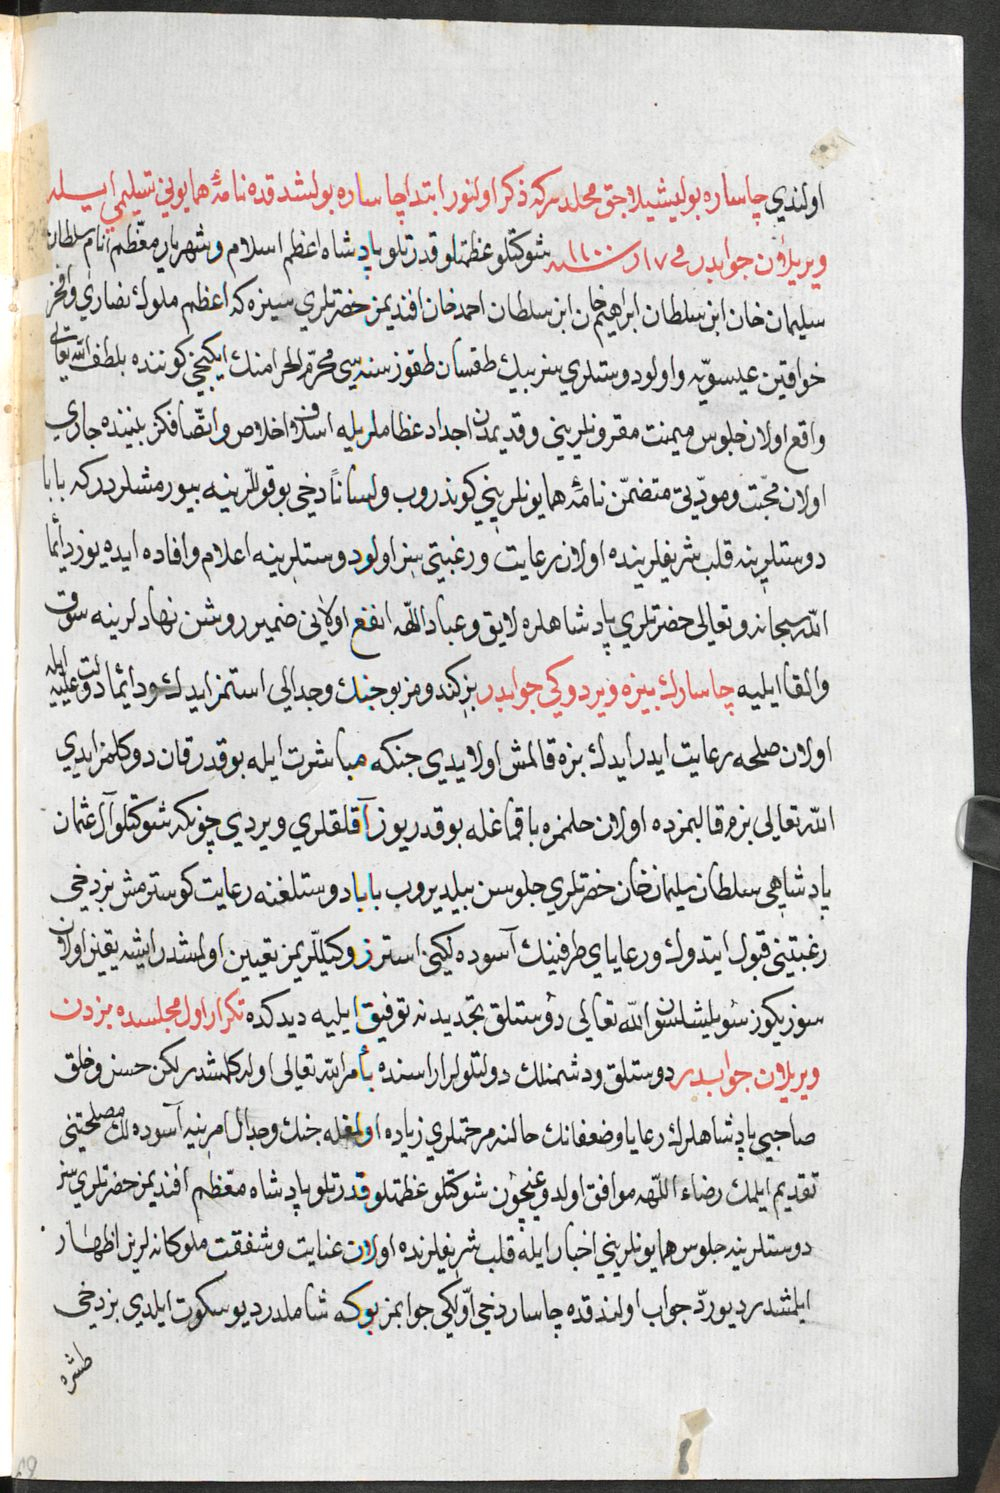 اولندي چاساره بولیشیلاجق محلدر که ذکر اولنور ابتدا چاساره بولشدقده نامهٔ همایونی تسلیمی ایسله
ویریلان جوابدر فی ۱۷ ر سنه ۱۱۰۰ شوکتلو عظمتلو قدرتلو پادشاه اعظم اسلام و شهریار معظّم انام سلطان
سلیمان خان ابن سلطان ابراهیم خان ابن سلطان احمد خان افندیمز حضرتلری سیزه که اعظم ملوك نصاری و افخر
خواقین عیسویّه و اولو دوستلری سز بیك طقسان طقوز سنه سی محرّم الحرامنك ایکنجی کوننده بلطف الله تعالی
واقع اولان جلوس میمنت مقرونلرینی و قدیمدن اجداد عظاملریله اسلافکز بیننده جاری
اولان محبّت و مودّتی متضمّن نامهٔ همایونلرینی کوندروب و لساناً دخی بو قوللرینه بیورمشلردر که بابا
دوستلرینه قلب شریفلرینده اولان رعایت و رغبتی سز اولو دوستلرینه اعلام و افاده ایده یوز دائما
الله سبحانه و تعالی حضرتلری پادشاهلره لایق و عباد اللّهه انفع اولانی ضمیر روشن نهادلرینه سوق
و القا ایلیه چاسارك بیزه ویردوکی جوابدر بز کندومز بو جنك و جدالی استمز ایدك و دائما دولت علیّه ایله
اولان صلحه رعایت ایدر ایدك بزه قالمش اولایدی جنکه مباشرت ایله بو قدر قان دوکلمز ایدی
الله تعالی بزم قالبمزده اولان حلمزه باقمغله بو قدر یوز آقلقلری ویردی چونکه شوکتلو آل عثمان
پادشاهی سلطان سلیمان خان حضرتلری جلوسن بیلدیروب بابا دوستلغنه رعایت کوسترمش بز دخی
رغبتینی قبول ایتدوك و رعایای طرفینك آسوده لکنی استرز وکیللریمز تعیین اولمشدر ایشه یقین اولان
سوزیکوز سویلشلسون الله تعالی دوستلق تجدیدنه توفیق ایلیه دیدکده تکرار اول مجلسده بزدن
ویریلان جوابدر دوستلق و دشمنلك دولتلولر اراسنده بأمر الله تعالی اوله کلمشدر لکن حسن و خلق
صاحبی پادشاهلرك رعایا و ضعفانك حالنه مرحمتلری زیاده اولمغله جنك و جدال امرینه آسوده لك مصلحتنی
تقدیم ایلمك رضاء اللّهه موافق اولدوغیچون شوکتلو عظمتلو قدرتلو پادشاه معظّم افندیمز حضرتلری سز
دوستلرینه جلوس همایونلرینی اخبار ایله قلب شریفلرنده اولان عنایت و شفقت ملوکانه لرین اظهار
ایلمشدر دیو ردّ جواب اولندقده چاسار دخی اوّلکی جوابمز بوکه شاملدر دیو سکوت ایلدی بز دخی
طشره